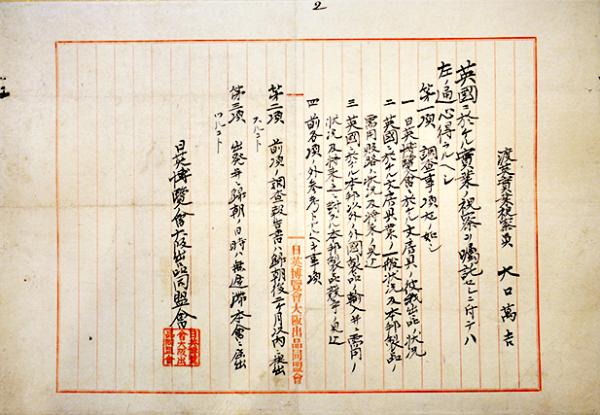 2
渡英實業視察員 大口萬吉
英國ニ於ケル實業ノ視察ヲ囑託セシニ付テハ
左ノ通心得ラルヘシ
第一項 調査事項左ノ如シ
一 日英博覽會ニ於ケル文房具ノ出品ノ状況
二 英國ニ於ケル文房具業ノ一般状況及本邦製品ノ
需用販路ノ状況及將来ノ見込
三 英國ニ於ケル本邦以外ノ外國製品ノ輸入并ニ需用ノ
状況及將来ニ對スル本邦製品ノ見込
四 前各項ノ外参考トナルヘキ事項
第二項 前項ノ調査報告書ハ歸朝後二ケ月以内ニ提出
スルコト
第三項 出發并ニ歸朝ノ日時ハ無遅滞本會ニ届出
ツルコト
日英博覽會大阪出品同盟會
日英博覽會大阪出品同盟會
日英博覽會大阪出品同盟會